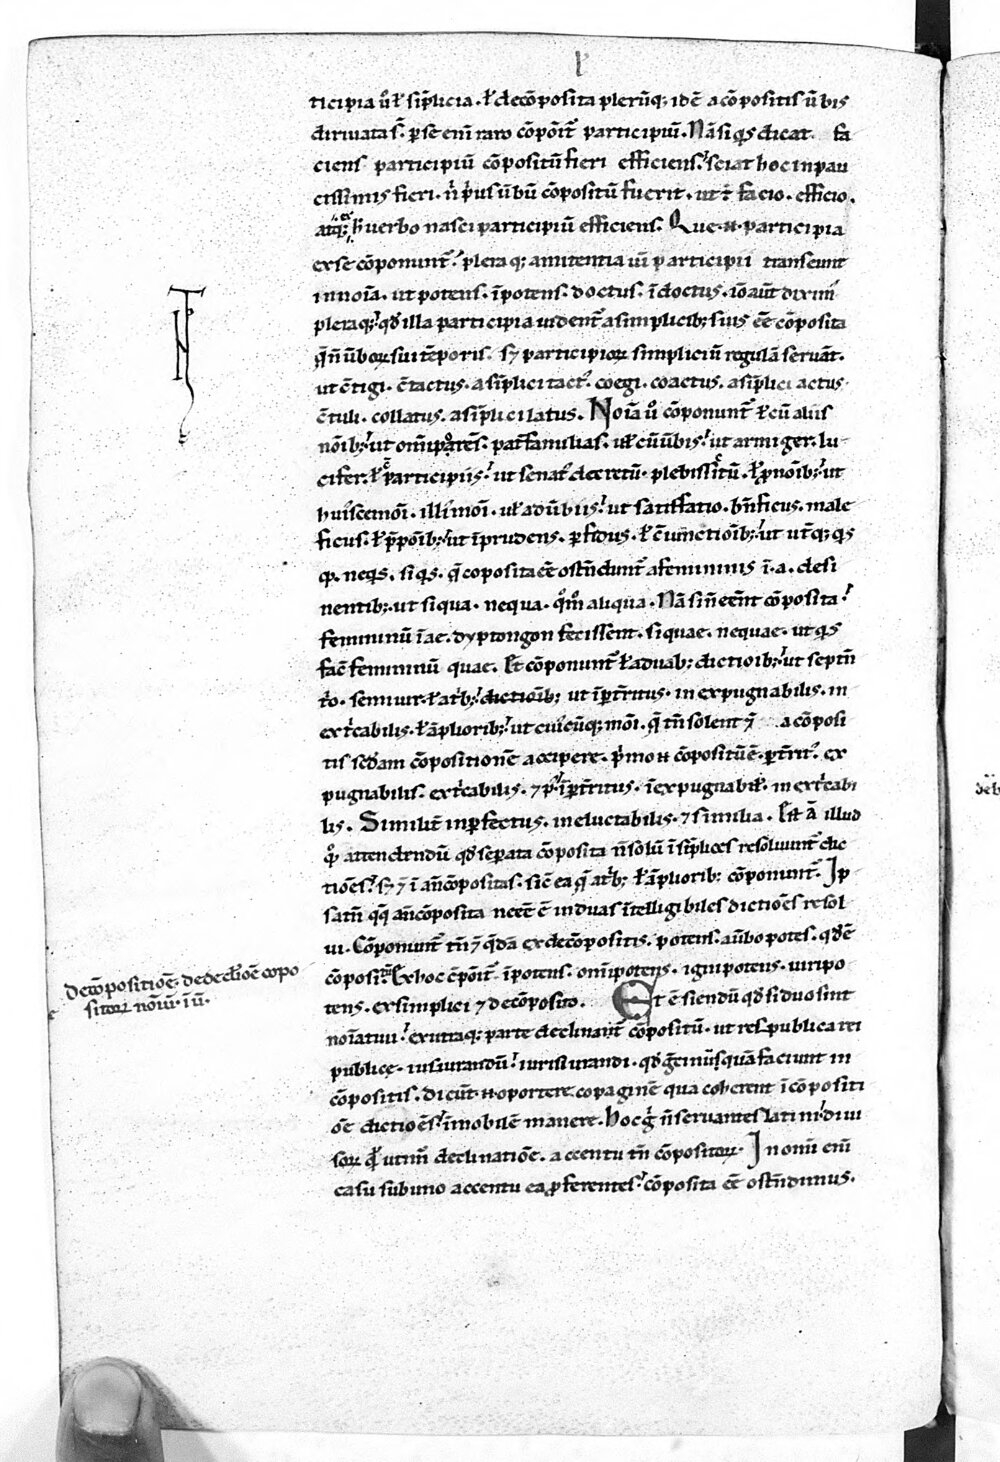 ticipia ůł siṗlicia. ł decōposita plerūq; idē a cōpositis ūbis
dirivata sͭ. ꝑ se eni᷉ raro cōpōit᷉ participiū. Nā si qͥs dicat fa
ciens participiū cōpositū fieri efficiens. sciat hoc in pau
cissimis fieri. n̄ pͥus ūbū cōpositū fuerit. ut ÷ facio. efficio.
atq; ex h̄ verbo nasci participiū efficiens. Que .n. participia
ex se cōponunt᷉. pleraq; amitentia uim participii transeunt
in noīa. ut potens. īpotens. doctus. īdoctus. iō aut̄ diximꝰ
pleraq;. qđ illa participia uident᷉ a simplicib; suis eē cōposita
q̄ n̄ ūboꝝ sui tēporis. sꝫ participioꝝ simpliciū regulā servāt.
ut c̄tigi. c̄tactus. a siṗlici tactꝰ. coegi. coactus. a siṗlici actus.
c̄tuli. collatus. a siṗlici latus. Noīa ů cōponunt᷉ ł cū aliis
nōib;. ut om̄ipotēs. pat᷉familias. uł cū ūbis. ut armiger. lu-
cifer. ł participiis. ut senatꝰ decretū. plebissͨitū. ł ꝓnōib;. ut
huiꝰscemōi. illiꝰmōi. uł aduūbiis. ut satisfatio. bn̄ficus. male
ficus. ł p̄pōib;. ut īprudens. ꝑfidus. ł c̄iunctioīb;. ut ut᷉q; qͥs
qͣ. neqͥs. siqͥs. q̄ coposita eē ostn̄dunt᷉ a femininis ī .a. desi
nentib;. ut siqua. nequa. qͦm̄ aliqua. Nā si n̄ eēnt cōposita
femininū ī ae. dyptongon fecissent. siquae. nequae. ut qͥs
facͭ femininū quae. Et cōponunt᷉ ł a duab; dictioīb;. ut septn̄
tͥo. semiuir. ł a tͥb; dictioīb; ut īꝑt᷉ritus. inexpugnabilis. in
extͥcabilis. ł a ꝑlurib;. ut cuiꝰcūq;mōi. q̄ tn̄ solent ⁊ a cōposi
tis sedͣam cōpositionē accipere. pͥmo .n. cōpositū ē. ꝑt᷉ritꝰ. ex
pugnabilis. extͥcabilis. ⁊ pꝰ īꝑt᷉ritus. īexpugnabił. inextͥcabi
lis. Similit᷉ inꝑfectus. ineluctabilis. ⁊ similia. Est aū illud
qͦꝗ attendendū qđ seꝑata cōposita n̄ solū ī siṗlices resoluunt᷉ dic
tiōes. sꝫ ⁊ ī an̄cōpositas. sic̄ ea q̄ a tͥb; ł a ꝑlurib; cōponunt᷉. Ip
sa tn̄ q̄q̄ an̄cōposita nec̄ē ē in duas ītelligibiles dictiōes resol
ui. Cōponunt᷉ tn̄ ⁊ q̄dā ex decōpositis. potens. a ūbo potes. qđ ē
cōpositū. Ex hoc cōpōit᷉ īpotens. om̄ipotens. ignipotens. uiripo
tens. ex simplici ⁊ decōposito. Et ē sciendū qđ si duo sint
noīatiui. ex utraq; parte declinant᷉ cōpositū. ut res publica rei
publice. iusiurandū. iurisiurandi. qđ gͤci nūsquā faciunt in
cōpositis. dicūt .n. oportere copaginē qua coherent ī cōpositi
ōe dictiōes. īmobilē manere. hoc gͥ n̄ servantes latini. diui
soꝝ q̄ꝗ utunt᷉ declinatiōe. accentu tn̄ cōpositoꝝ. In omni eni᷉
casu sub uno accentu ea ꝓferentes. cōposita eē ostn̄dimus.
de cōpositiōe. de declīōe copo
sitoꝝ nōiū. iū.